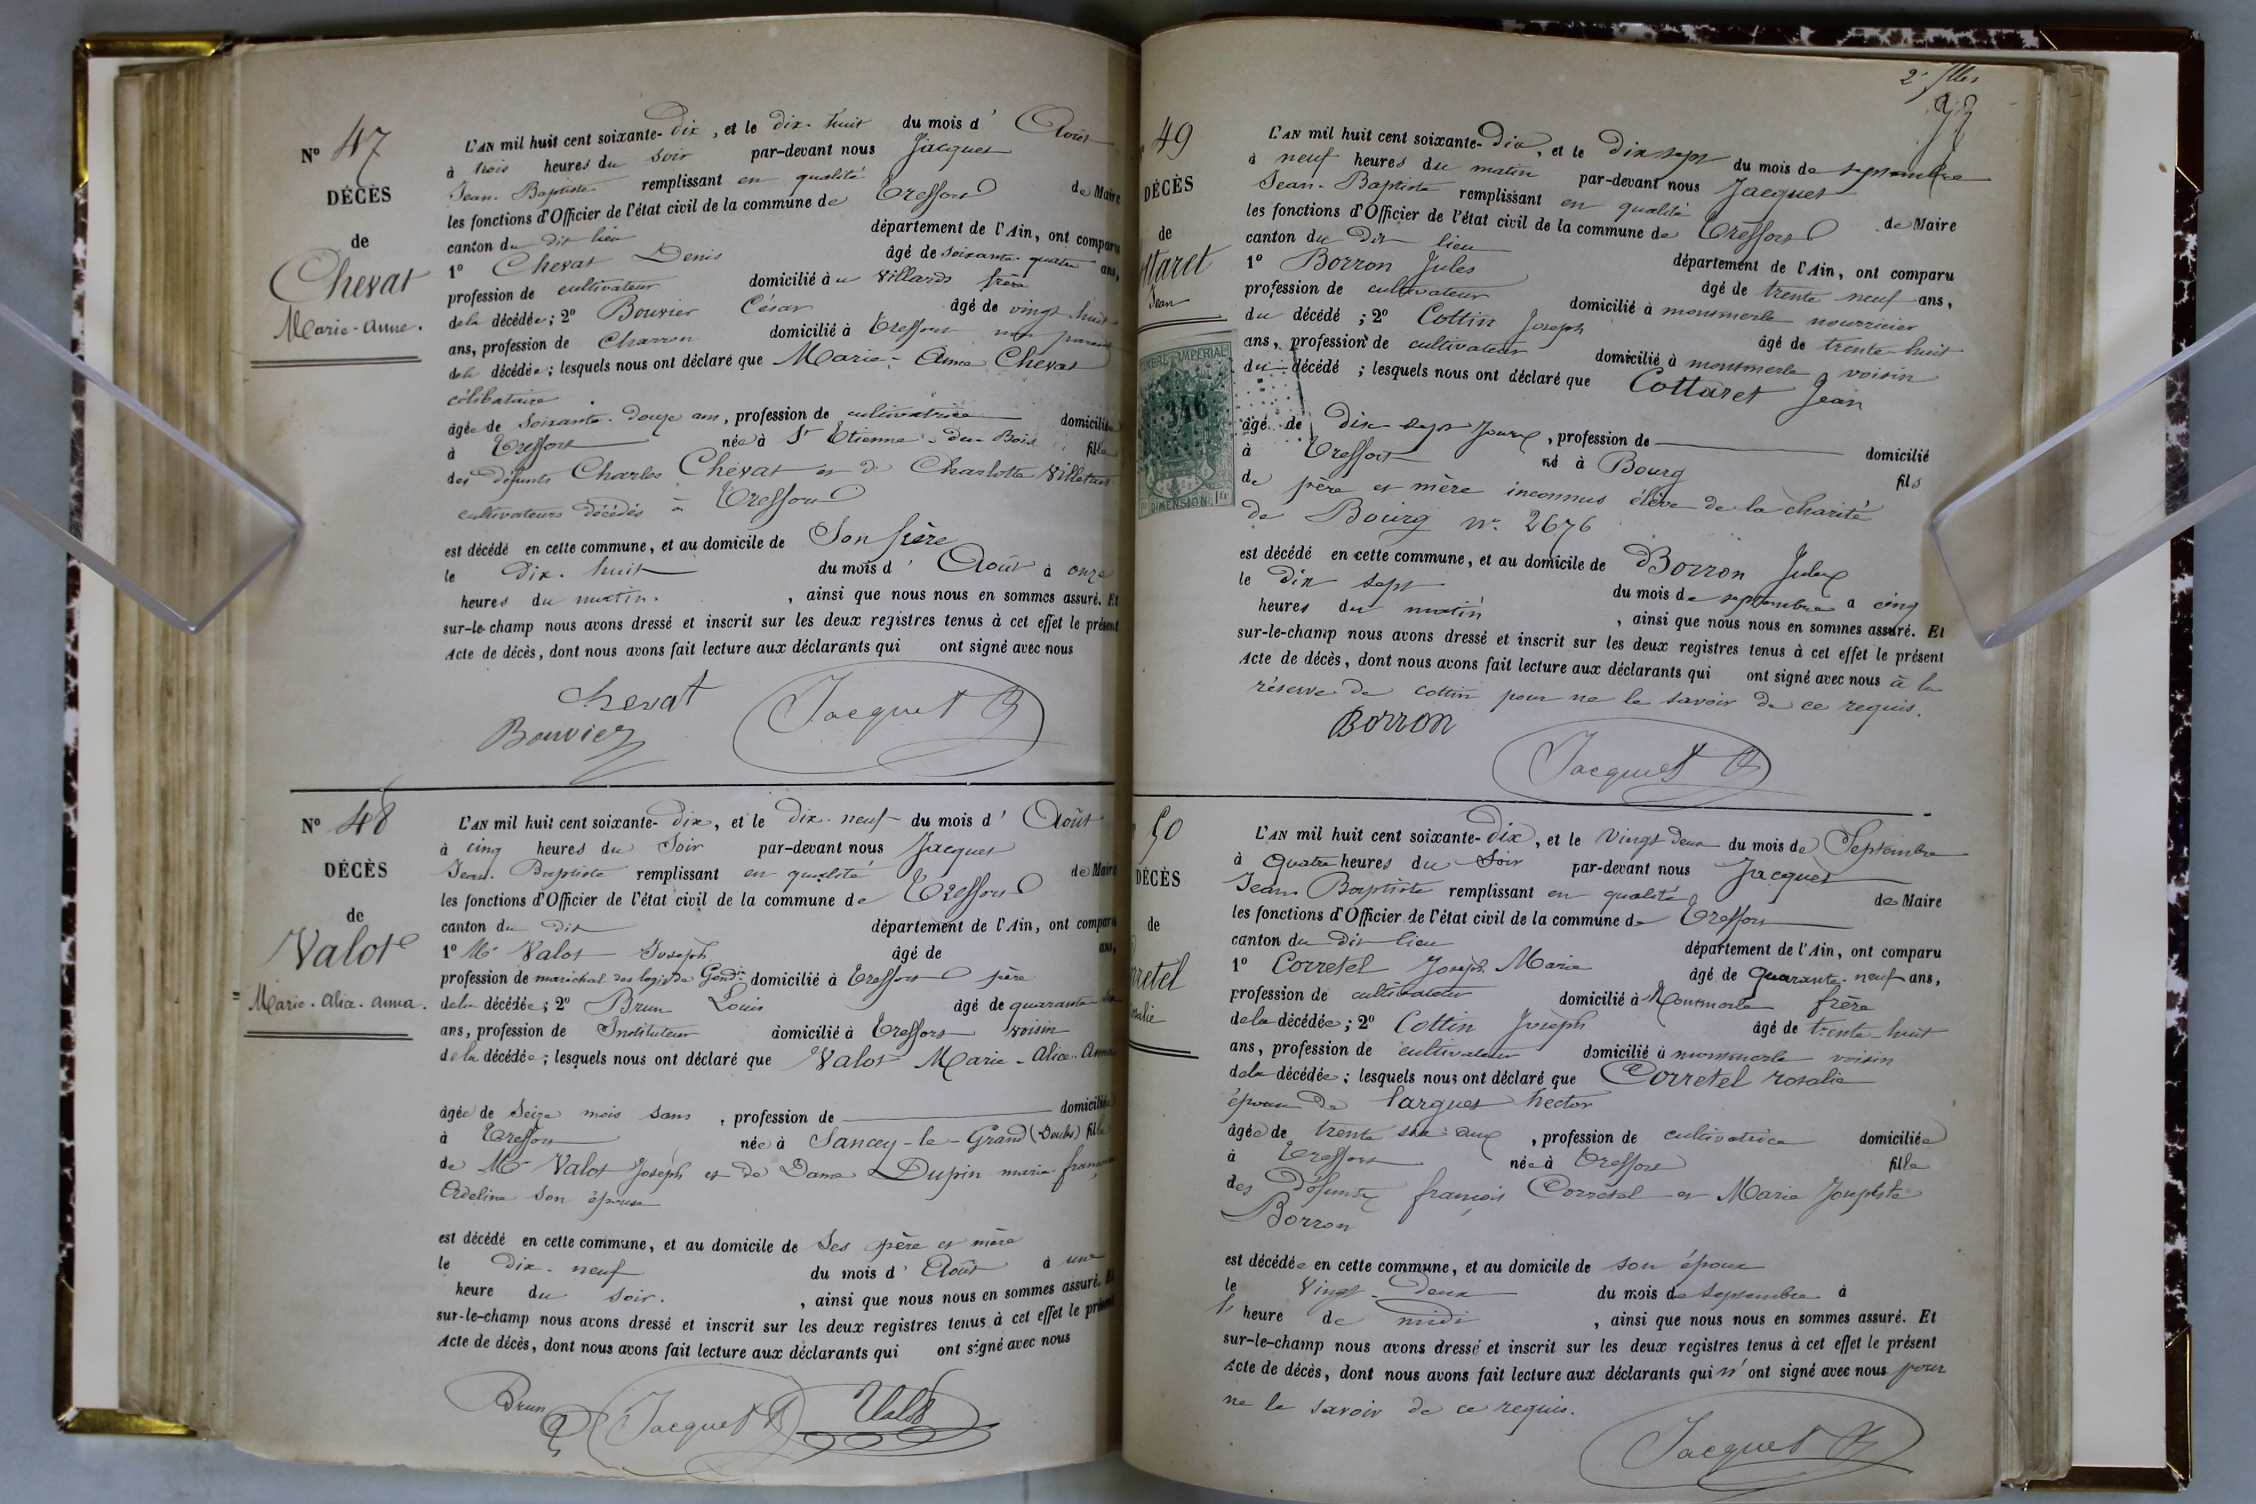 N° 47
DÉCÈS
de
Chevat
Marie-Anne.
L'AN mil huit cent soixante-dix, et le dix-huit du mois d' Août
à trois heures du soir par-devant nous Jacquet
Jean-Baptiste remplissant en qualité de Maire
les fonctions d'Officier de l'état civil de la commune de Treffort
canton du dit lieu département de l'Ain, ont comparu
1° Chevat Denis âgé de soixante-quatre ans,
profession de cultivateur domicilié à u villards frère
dela décédée; 2° Bouvier César âgé de vingt huit
ans, profession de Charron domicilié à Treffort non parent
dela décédée; lesquels nous ont déclaré que Marie-Anne Chevat
célibataire
âgée de soixante-douze ans, profession de cultivatrice domiciliée
à Treffort née à St Etienne-du-Bois fille
des défunts Charles Chevat et de Charlotte
cultivateurs décédés à Treffort
est décédé en cette commune, et au domicile de Son frère
le dix-huit du mois d' Août à onze
heures du matin. , ainsi que nous nous en sommes assuré. Et
sur-le-champ nous avons dressé et inscrit sur les deux registres tenus à cet effet le présent
Acte de décès, dont nous avons fait lecture aux déclarants qui ont signé avec nous
Chevat
Bouvier Jacquet
N° 48
DÉCÈS
de
Valot
Marie-Alice-Anna.
L'AN mil huit cent soixante-dix, et le dix-neuf du mois d' Août
à cinq heures du Soir par-devant nous Jacquet
Jean-Baptiste remplissant en qualité de Maire
les fonctions d'Officier de l'état civil de la commune de Treffort
canton du dit département de l'Ain, ont comparu
1° Mr Valot Joseph âgé de ans,
profession de maréchal des logis de Gendie domicilié à Treffort père
dela décédée; 2° Brun Louis âgé de quarante
ans, profession de Instituteur domicilié à Treffort voisin
dela décédée; lesquels nous ont déclaré que Valot Marie-Alice-Anna
âgée de Seize mois sans , profession de domiciliée
à Treffort née à Sancey-le-Grand (Doubs) fille
de Mr Valot Joseph et de Dame Dupin marie françoise
Adeline son épouse
est décédé en cette commune, et au domicile de Ses père et mère
le dix-neuf du mois d' Août à une
heure du soir. , ainsi que nous nous en sommes assuré. Et
sur-le-champ nous avons dressé et inscrit sur les deux registres tenus à cet effet le présent
Acte de décès, dont nous avons fait lecture aux déclarants qui ont signé avec nous
Brun Jacquet Valot
2e
49
DÉCÈS
de
ttaret
Jean
IMPÉRIAL
346
DIMENSION
L'AN mil huit cent soixante-dix, et le dix sept du mois de septembre
à neuf heures du matin par-devant nous Jacquet
Jean-Baptiste remplissant en qualité de Maire
les fonctions d'Officier de l'état civil de la commune de Treffort
canton du dit lieu département de l'Ain, ont comparu
1° Borron Jules âgé de trente neuf ans,
profession de cultivateur domicilié à montmerle nourricier
du décédé ; 2° Cottin Joseph âgé de trente-huit
ans, profession de cultivateur domicilié à montmerle voisin
du décédé ; lesquels nous ont déclaré que Cottaret Jean
âgé de dix-sept jours , profession de domicilié
à Treffort né à Bourg fils
de père et mère inconnus élève de la charité
de Bourg n° 2676
est décédé en cette commune, et au domicile de Borron Jules
le dix sept du mois de septembre à cinq
heures du matin , ainsi que nous nous en sommes assuré. Et
sur-le-champ nous avons dressé et inscrit sur les deux registres tenus à cet effet le présent
Acte de décès, dont nous avons fait lecture aux déclarants qui ont signé avec nous à la
réserve de cottin pour ne le savoir de ce requis.
Borron
Jacquet
50
DÉCÈS
de
rretel
L'AN mil huit cent soixante-dix, et le Vingt deux du mois de Septembre
à quatre heures du Soir par-devant nous Jacquet
Jean-Baptiste remplissant en qualité de Maire
les fonctions d'Officier de l'état civil de la commune de Treffort
canton du dit lieu département de l'Ain, ont comparu
1° Corretel Joseph Marie âgé de quarante-neuf ans,
profession de cultivateur domicilié à Montmerle frère
dela décédée; 2° Cottin Joseph âgé de trente-huit
ans, profession de cultivateur domicilié à montmerle voisin
dela décédée; lesquels nous ont déclaré que Corretel rosalie
épouse de larguet hector
âgée de trente six ans , profession de cultivatrice domiciliée
à Treffort née à Treffort fille
des défunts françois Corretel et Marie Josephte
Borron
est décédée en cette commune, et au domicile de son époux
le Vingt-deux du mois de septembre à
heure de midi , ainsi que nous nous en sommes assuré. Et
sur-le-champ nous avons dressé et inscrit sur les deux registres tenus à cet effet le présent
Acte de décès, dont nous avons fait lecture aux déclarants qui n'ont signé avec nous pour
ne le savoir de ce requis.
Jacquet